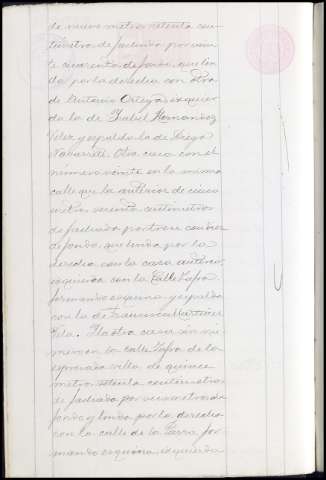 de nueve metros setenta cen-
tímetros de fachada por vein-
te cuarenta de fondo, que lin-
da por la derecha con otra
de Antonio Ortega izquier-
da la de Isabel Hernandez
Velez y espalda la de Diego
Navarrete. Otra casa con el
número veinte en la misma
calle que la anterior de cinco
metros setenta centímetros
de fachada por trece
de fondo, que linda por la
derecha con la casa anterior,
izquierda con la Calle Zafra
formando esquina y espalda
con la de Martinez
Y otra casa sin nú-
mero en la calle Zafra de la
espresada villa, de quince
metros setenta centímetros
de fachada por nueve metros de
fondo y linda por la derecha
con la calle de la Parra for-
mando esquina, izquierda